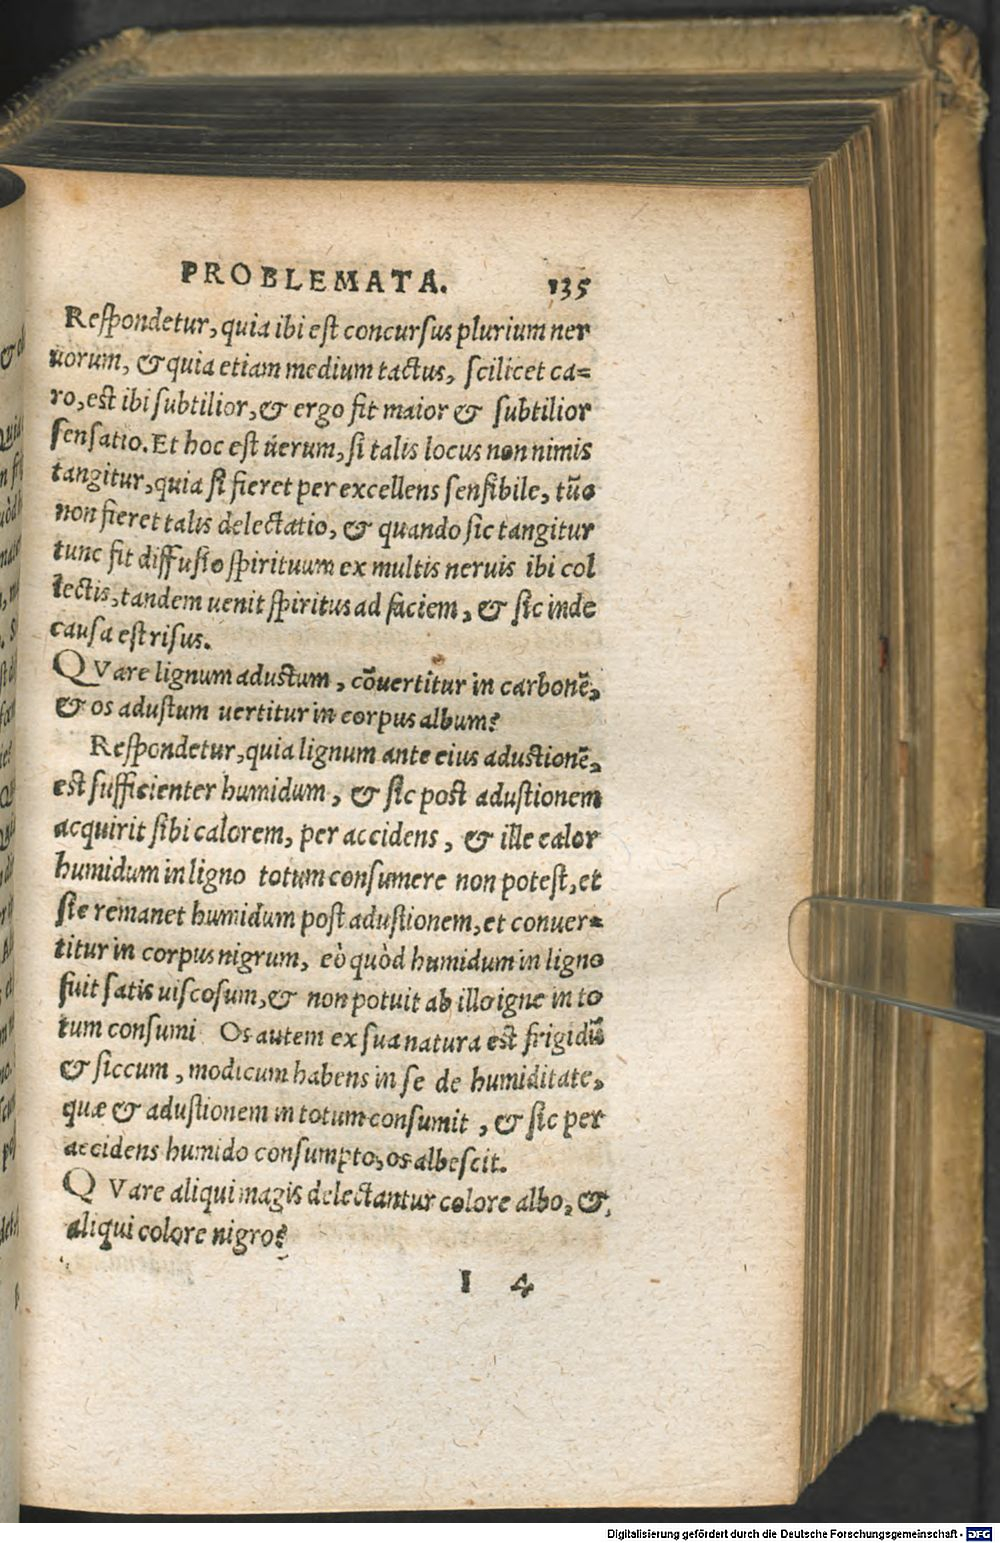 PROBLEMATA. 135
Respondetur, quia ibi est concursus plurium ner
uorum, & quia etiam medium tactus, scilicet ca=
ro, est ibi subtilior, & ergo fit maior & subtilior
sensatio. Et hoc est uerum, si talis locus non nimis
tangitur, quia si fieret per excellens sensibile, tūc
non fieret talis delectatio, & quando sic tangitur
tunc fit diffusio spirituum ex multis neruis ibi col
lectis, tandem uenit spiritus ad faciem, & sic inde
causa est risus.
QVare lignum adustum, cōuertitur in carbonē,
& os adustum uertitur in corpus album?
Respondetur, quia lignum ante eius adustionē,
est sufficienter humidum, & sic post adustionem
acquirit sibi calorem, per accidens, & ille calor
humidum in ligno totum consumere non potest, et
sic remanet humidum post adustionem, et conuer=
titur in corpus nigrum, eò quòd humidum in ligno
fuit satis uiscosum, & non potuit ab illo igne in to
tum consumi Os autem ex sua natura est frigidū
& siccum, modicum habens in se de humiditate,
quæ & adustionem in totum consumit, & sic per
accidens humido consumpto, os albescit.
QVare aliqui magis delectantur colore albo, &
aliqui colore nigro?
I 4
Digitalisierung gefördert durch die Deutsche Forschungsgemeinschaft - DFG